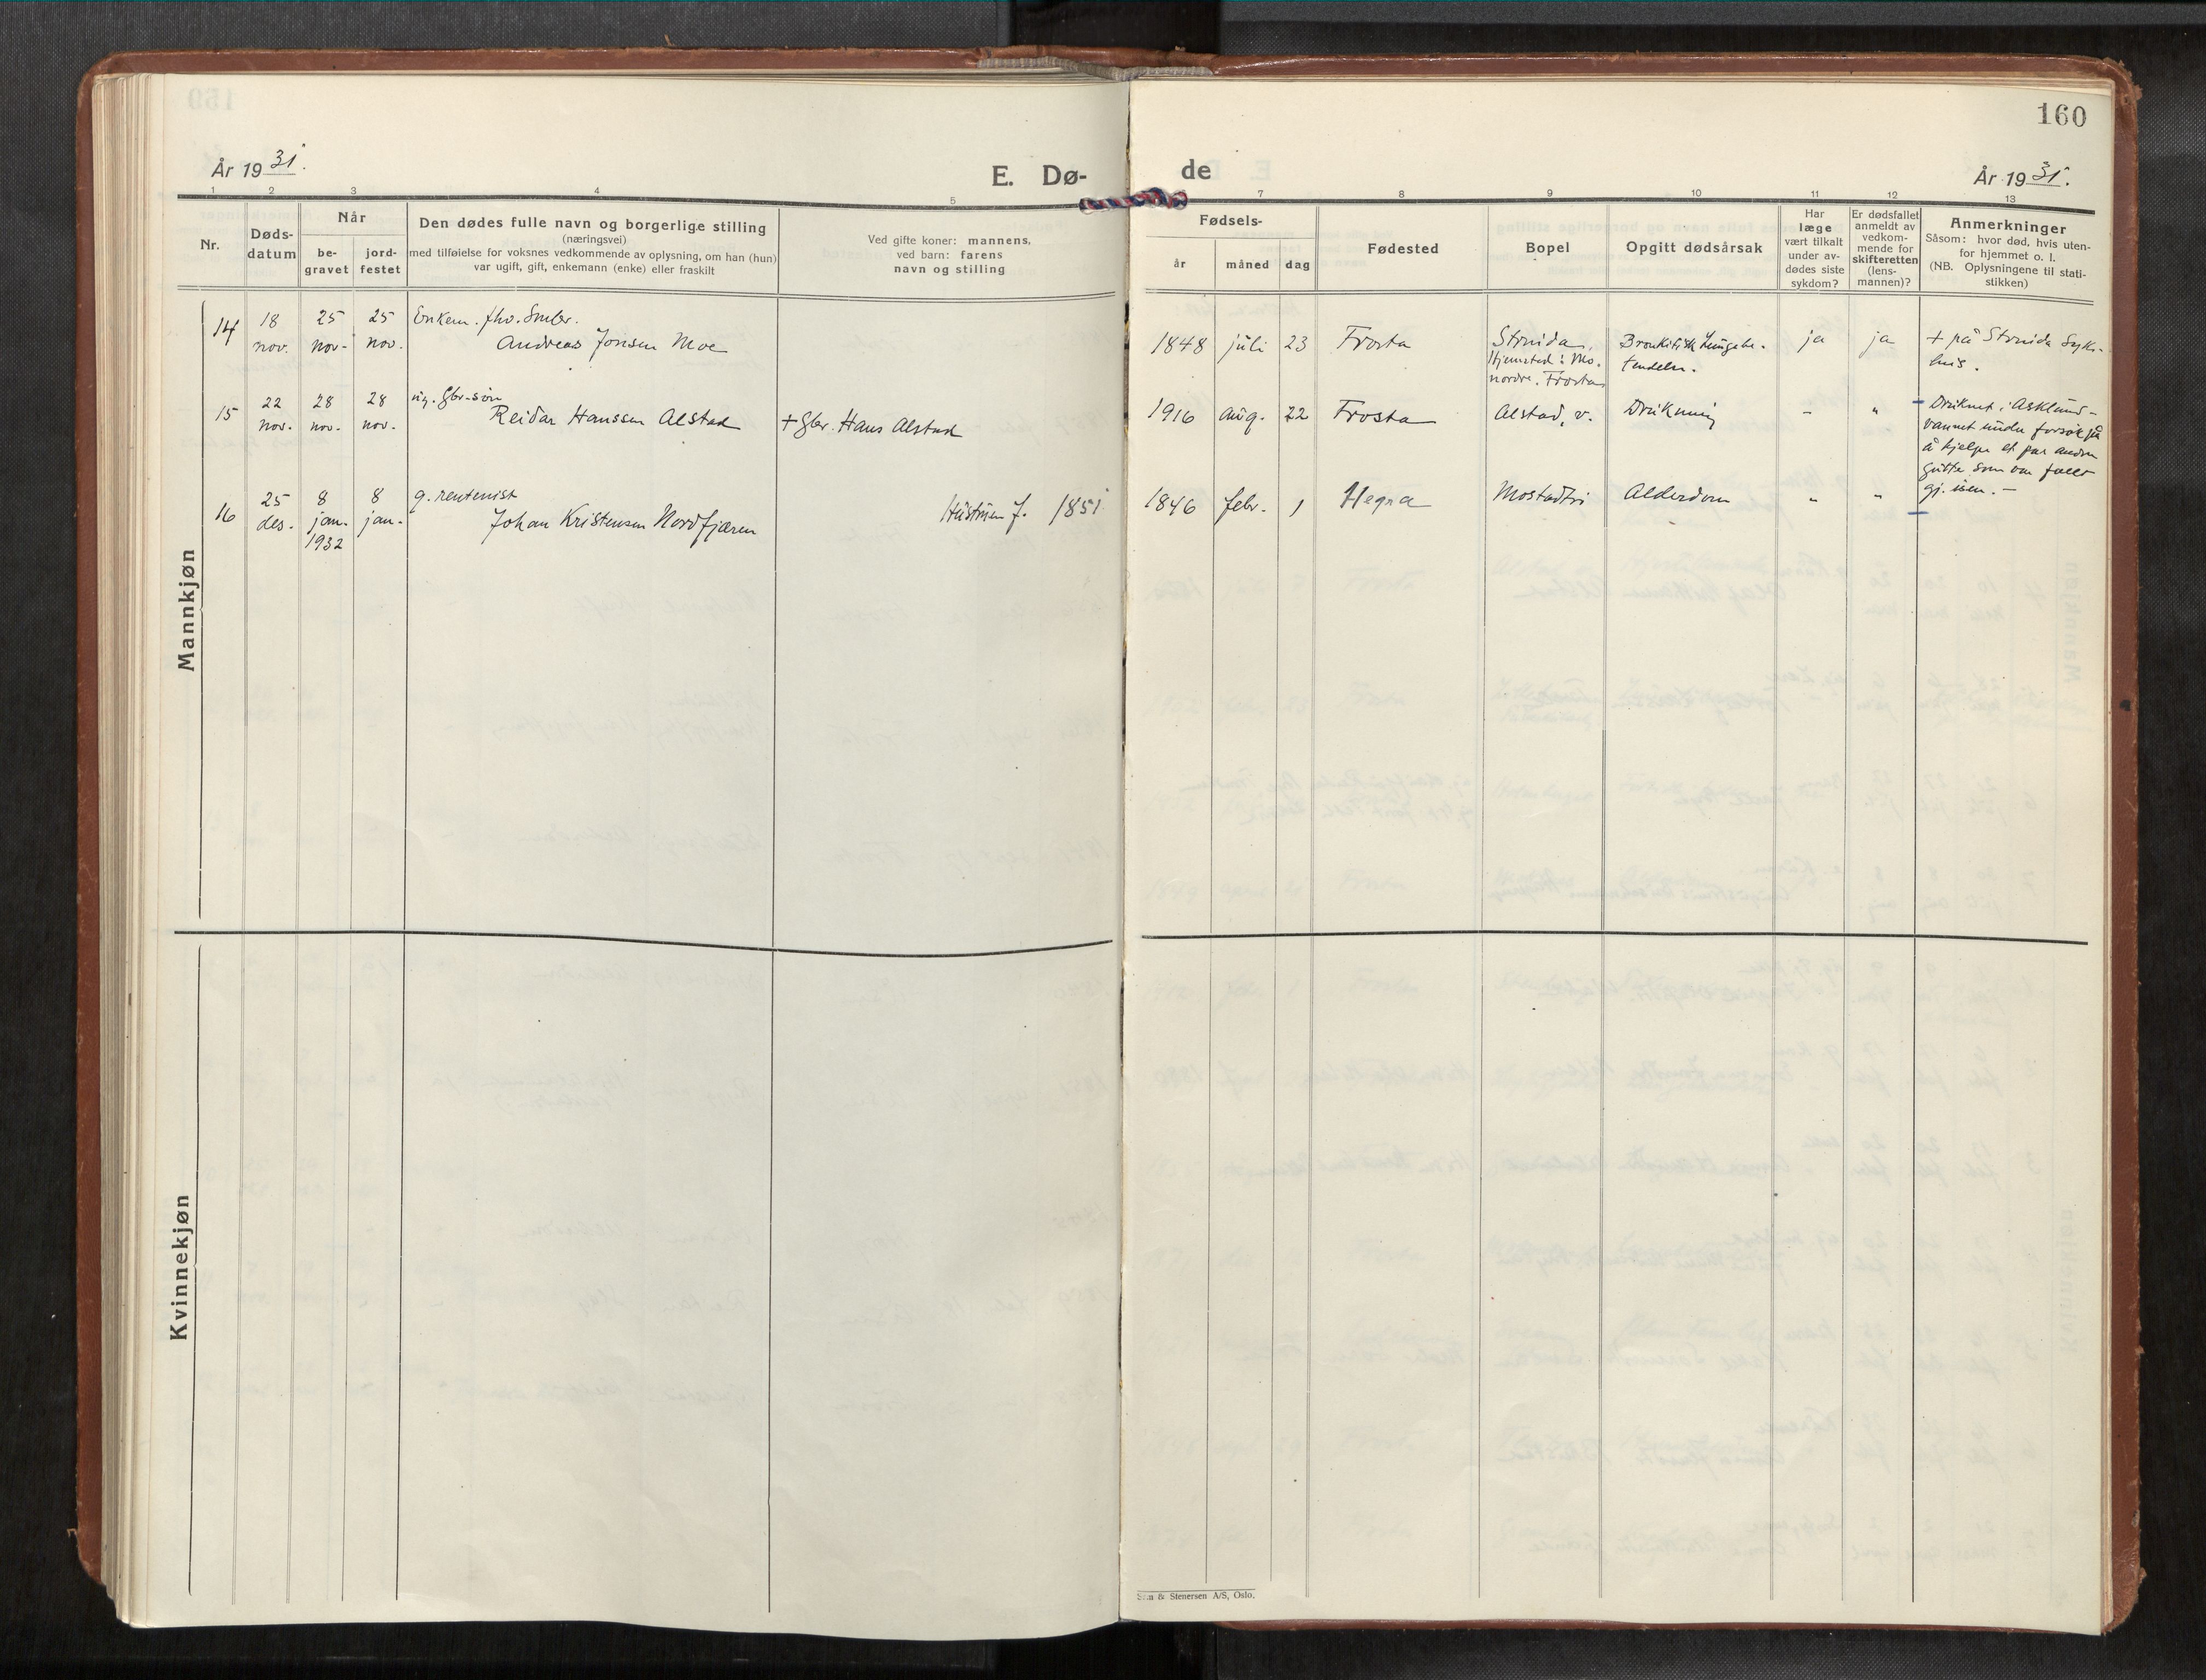 160
År 1931.
E. Dø-
de
År 1931.
1 2 3 4 5
7 8 9 10 11 12 13
Nr.
Døds-
datum
Når
be-
gravet
jord-
festet
Den dødes fulle navn og borgerlige stilling
(næringsvei)
med tilføielse for voksnes vedkommende av oplysning, om han (hun)
var ugift, gift, enkemann (enke) eller fraskilt
Ved gifte koner: mannens,
ved barn: farens
navn og stilling
Fødsels-
år
måned
dag
Fødested
Bopel
Opgitt dødsårsak
Har
læge
vært tilkalt
under av-
dødes siste
sykdom?
Er dødsfallet
anmeldt av
vedkom-
mende for
skifteretten
(lens-
mannen)?
Anmerkninger
Såsom: hvor død, hvis uten-
for hjemmet o. l.
(NB. Oplysningene til stati-
stikken)
Mannkjøn
14
18
nov.
25
nov.
25
nov.
Enkem. fhv. Smbr.
Andreas Jonsen Moe
1848 juli 23 Frosta
Strinda.
Hjemsted: Mo.
nordre. Frosta
Bronkitisk lungebe-
tendelse.
ja
ja
+ på Strinda Syke-
hus.
15
22
nov.
28
nov.
28
nov.
ug. gbr-søn
Reidar Hanssen Alstad
+ Gbr. Hans Alstad
1916 aug. 22 Frosta
Alstad, v.
Drukning
-
"
Druknet i Asklund-
vannet under forsøk på
å hjelpe et par andre
gutter som var falt
gj. isen. -
16
25
des.
8
jan.
1932
8
jan.
g. rentenist
Johan Kristensen Nordfjæren
Hustruen f. 1851
1846 febr. 1 Hegra
Mostadtrø
Alderdom
"
"
Kvinnekjøn
Sem & Stenersen A/S, Oslo.